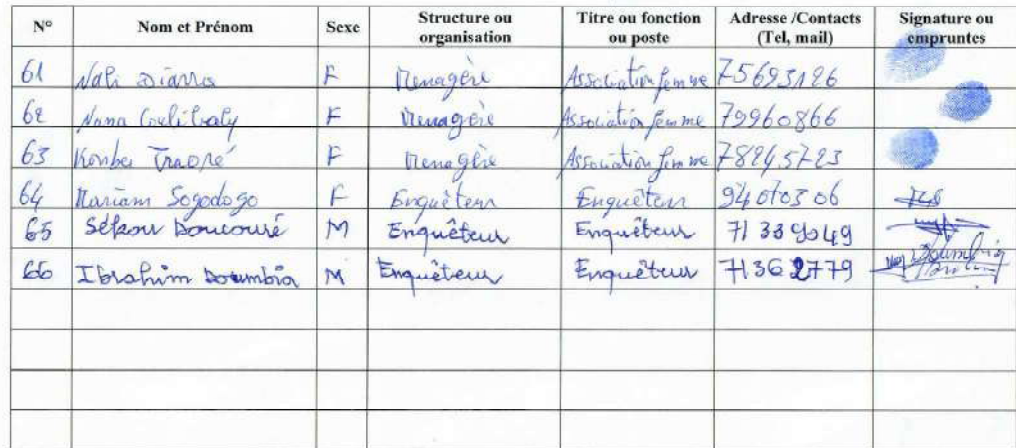 N° Nom et Prénom Sexe Structure ou organisation Titre ou fonction ou poste Adresse /Contacts (Tel, mail) Signature ou empruntes
61 Nah Diarra F Menagère Association femme 75693126
62 Nana Coulibaly F Menagère Association femme 79960866
63 Traoré F Menagère Association femme
64 Mariam Sogodogo F Enquêteur Enquêteur 94070306
65 Sékou Doucouré M Enquêteur Enquêteur 71339049
66 Ibrahim Doumbia M Enquêteur Enquêteur 71362779